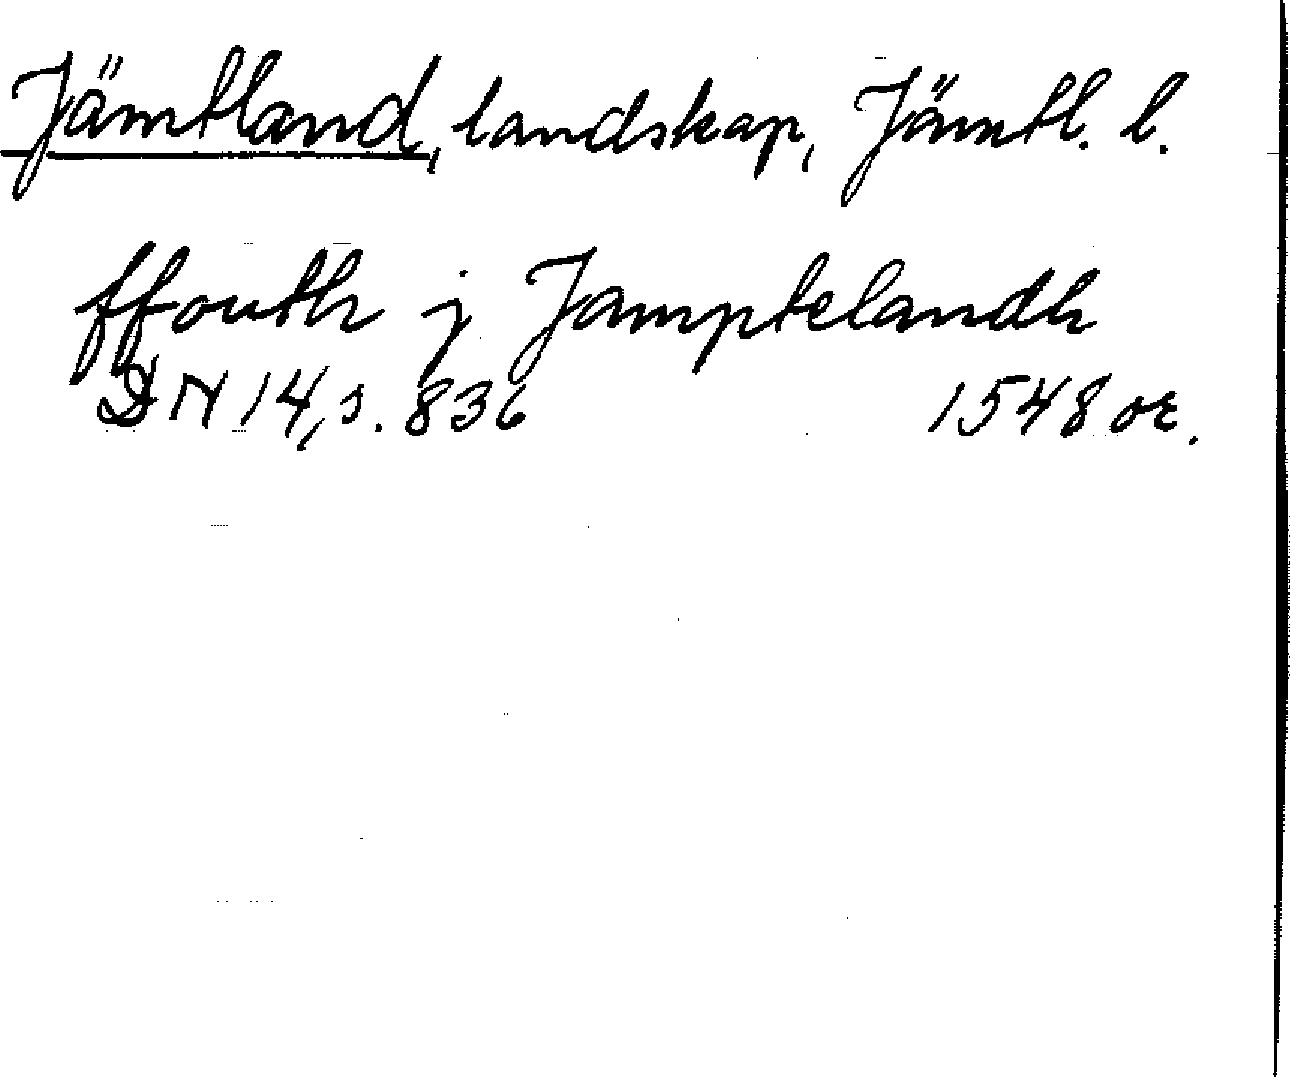 Jämtland, landskap, Jämtl. l.
ffouth j Jamptelandh
DN 14, s. 836 1548 or.